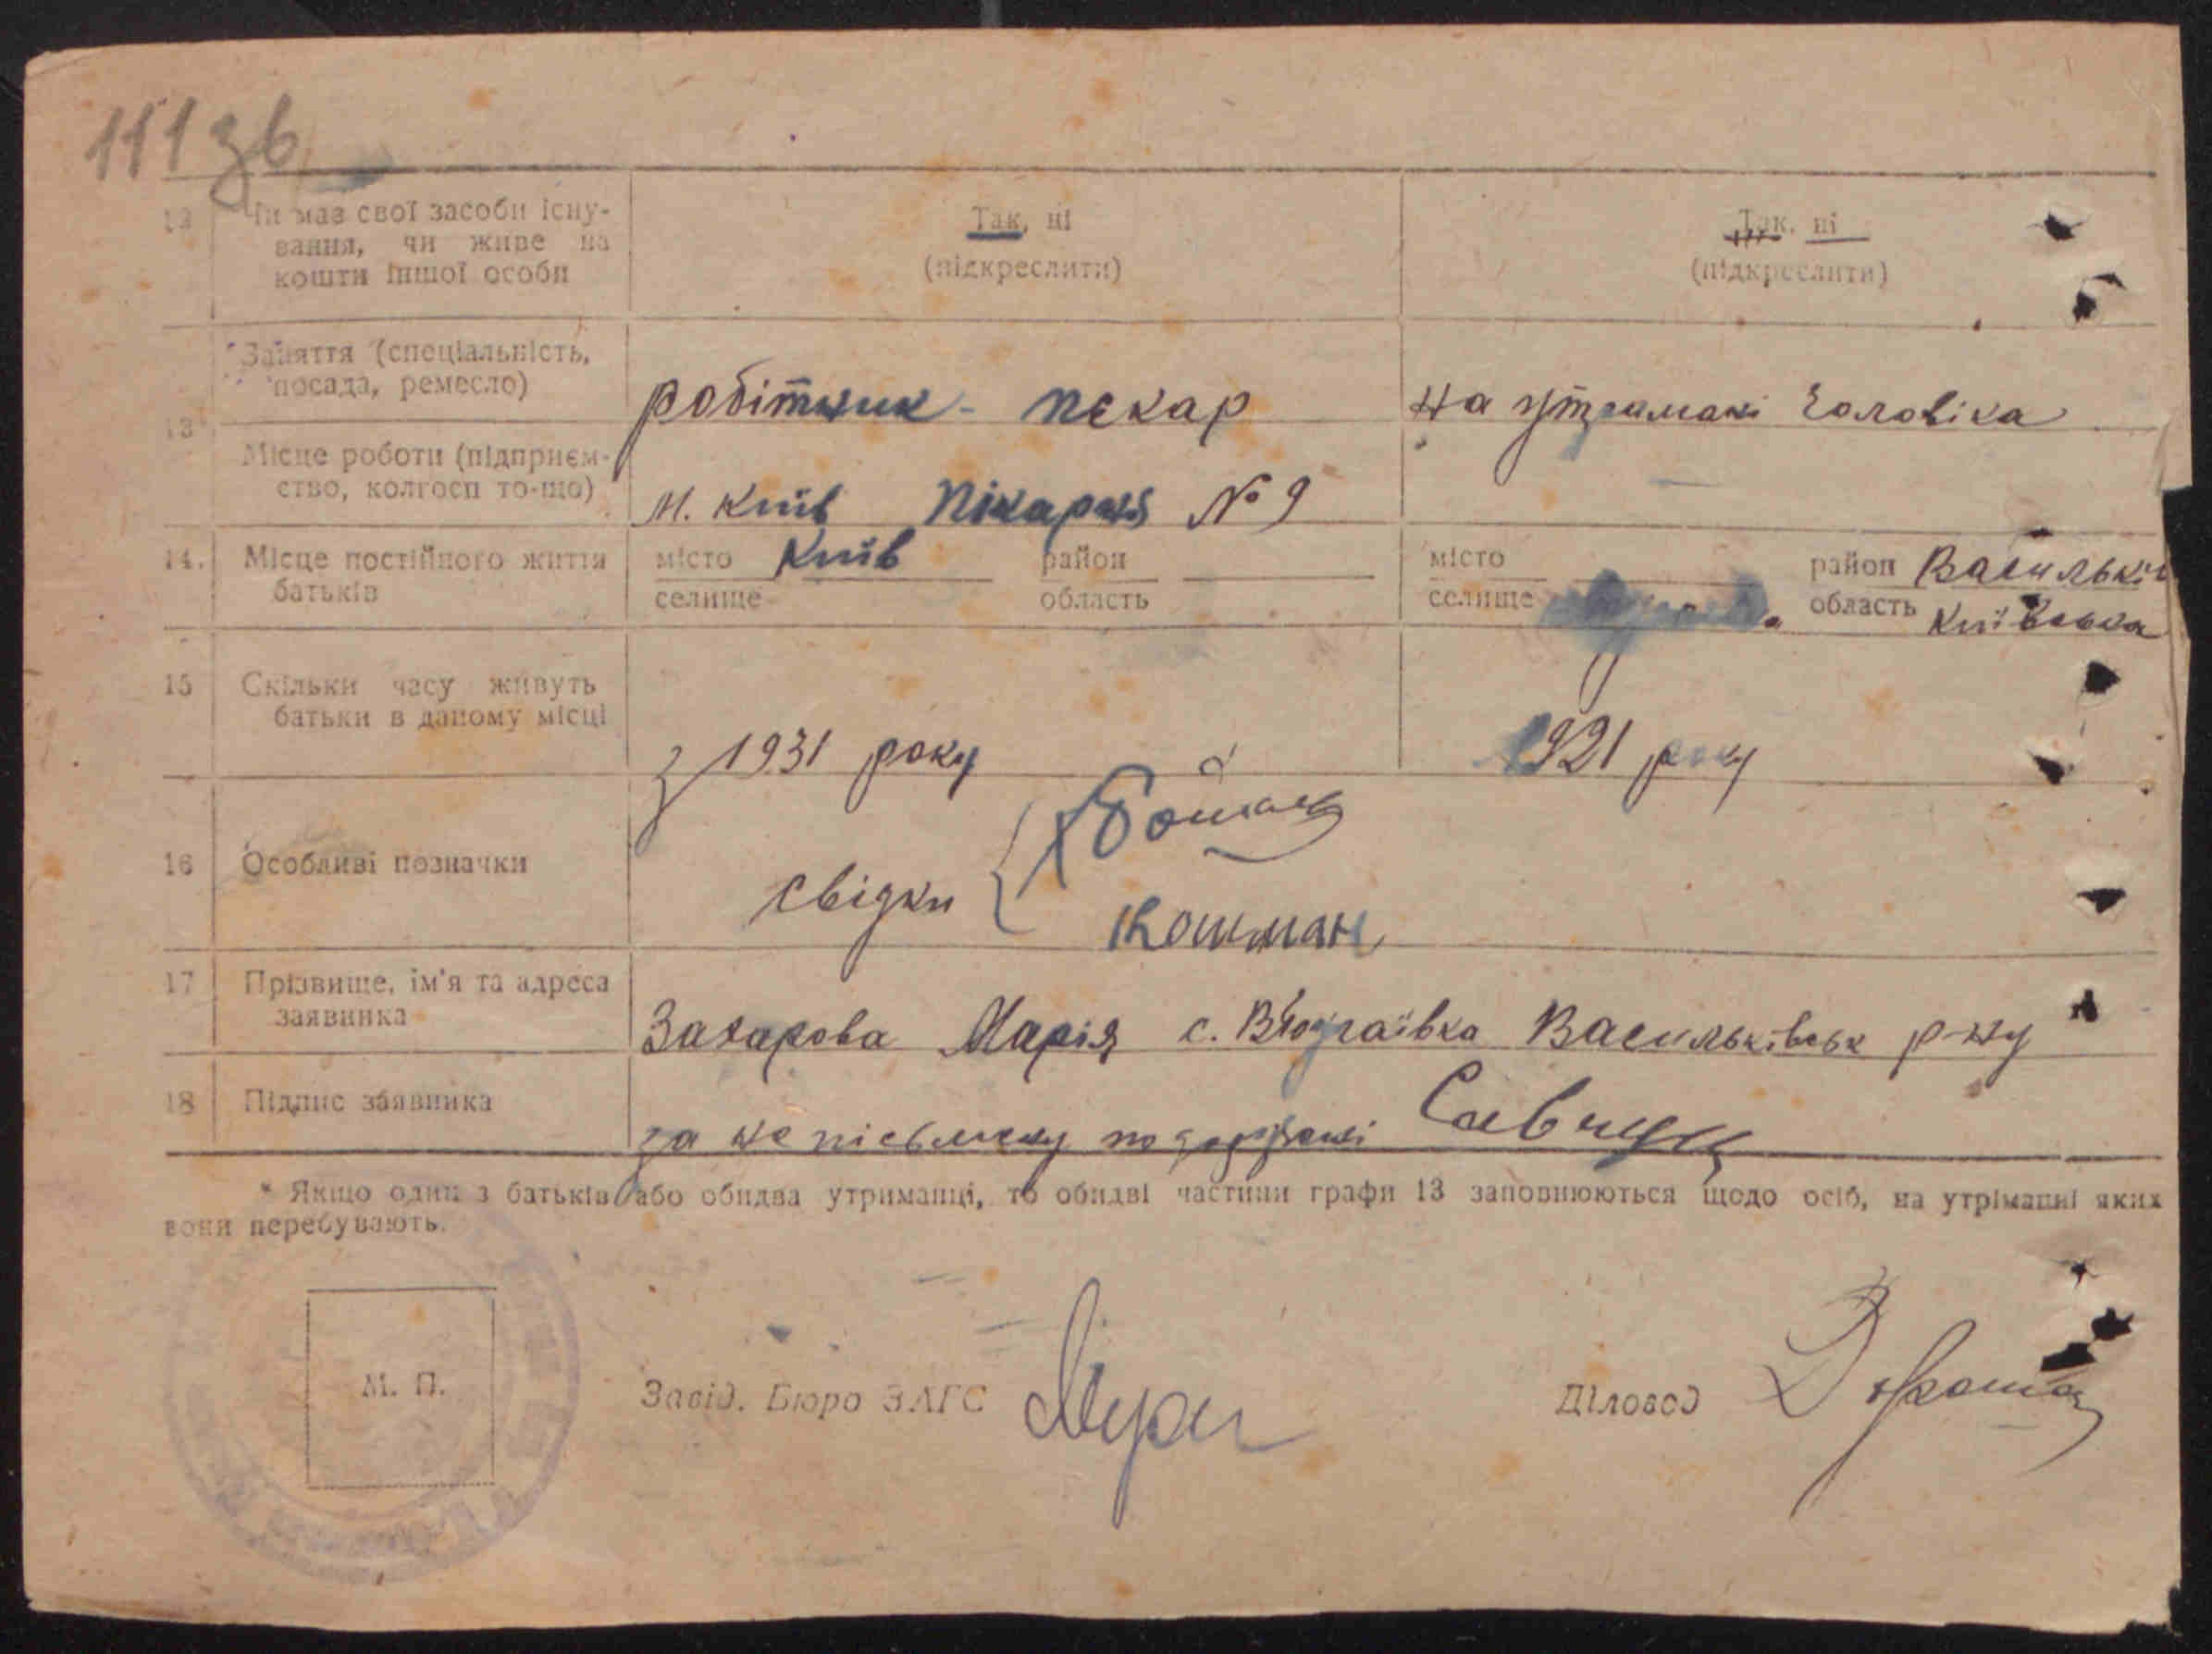 111 зв
12 Чи має свої засоби існу-
вання, чи живе на
кошти іншої особи
Так, ні
(підкреслити)
Так, ні
(підкреслити)
13 Заняття (спеціальність,
посада, ремесло)
робітник - пекар
на утримані чоловіка
Місце роботи (підприєм-
ство, колгосп то-що)
м. Київ Пікарня № 9
14. Місце постійного життя
батьків
місто Київ район
селище область
місто район Васильків
селище область Київська
15 Скільки часу живуть
батьки в даному місці
з 1931 року
1921 року
16 Особливі позначки
свідки
Кошман
17 Прізвище, ім'я та адреса
заявника
Захарова Марія с. Васильківськ р-ну
18 Підпис заявника
за не письмену
* Якщо один з батьків або обидва утриманці, то обидві частини графи 13 заповнюються щодо осіб, на утріманні яких
вони перебувають.
М. П.
Завід. Бюро ЗАГС
Діловод